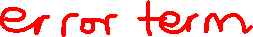 error term